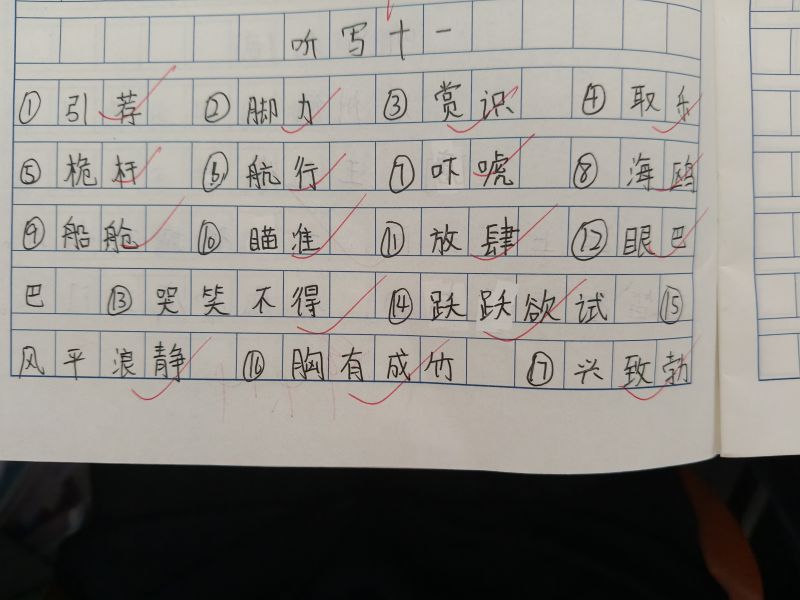 听写十一
① 引荐 ② 脚力 ③ 赏识 ④ 取乐
⑤ 桅杆 ⑥ 航行 ⑦ 吓唬 ⑧ 海鸥
⑨ 船舱 ⑩ 瞄准 ⑪ 放肆 ⑫ 眼巴
巴 ⑬ 哭笑不得 ⑭ 跃跃欲试 ⑮
风平浪静 ⑯ 胸有成竹 ⑰ 兴致勃